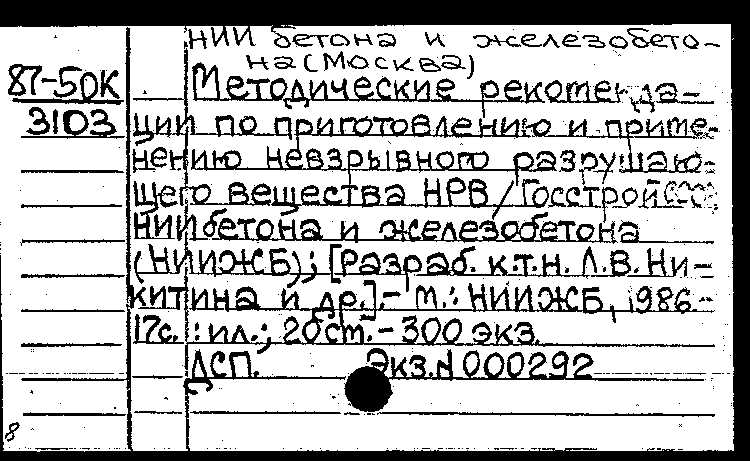 НИИ бетона и железобето-
на (Москва)
87-50К Методические рекоменда-
3103 ции по приготовлению и приме-
нению невзрывного разрушаю-
щего вещества НРВ/Госстрой СССР
НИИ бетона и железобетона
(НИИЖБ); [Разраб. к.т.н. Л.В. Ни-
китина и др.].- М.: НИИЖБ, 1986.-
17с. : ил.; 20 см. - 300 экз.
ДСП. Экз.N 000292
8